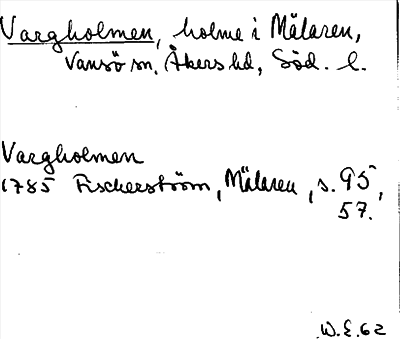 Vargholmen, holme i Mälaren,
Vansö sn, Åkers hd, Söd. l.
Vargholmen
1785 Fischerström, Mälaren, s. 95,
57.
W.E.62